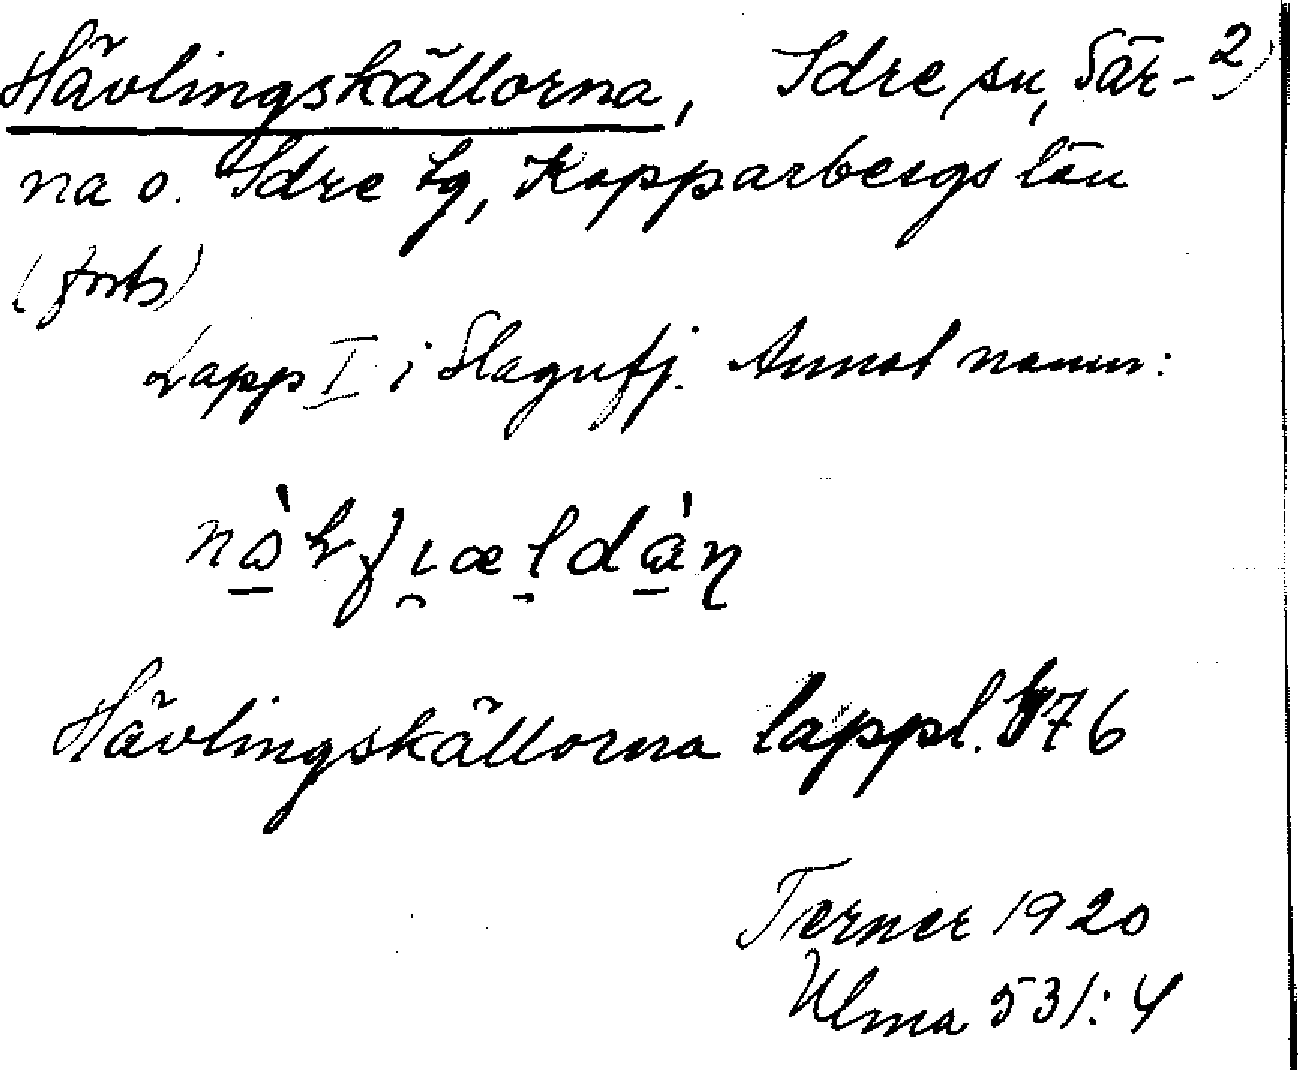 Hävlingskällorna, Idre sn, Sär- 2)
na o. Idre tg, Kopparbergs län
(forts)
Lapp I i Slagufj. Annat namn:
Hävlingskällorna lappl. 176
Terner 1920
Ulma 531:4